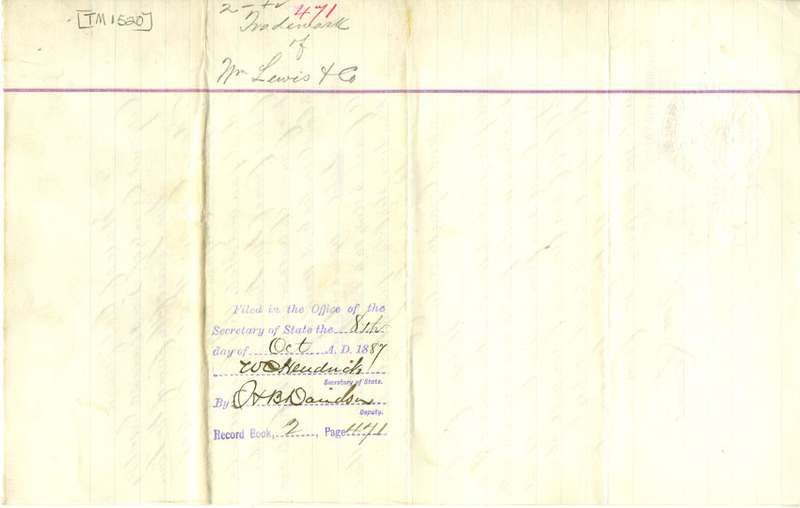 [TM1520]
471
Trademark
of
Wm Lewis & Co
Filed in the Office of the
Secretary of State the 8th
day of Oct A. D. 1887
W C Hendricks
Secretary of State.
By H B Davidson
Deputy.
Record Book, 2, Page 471